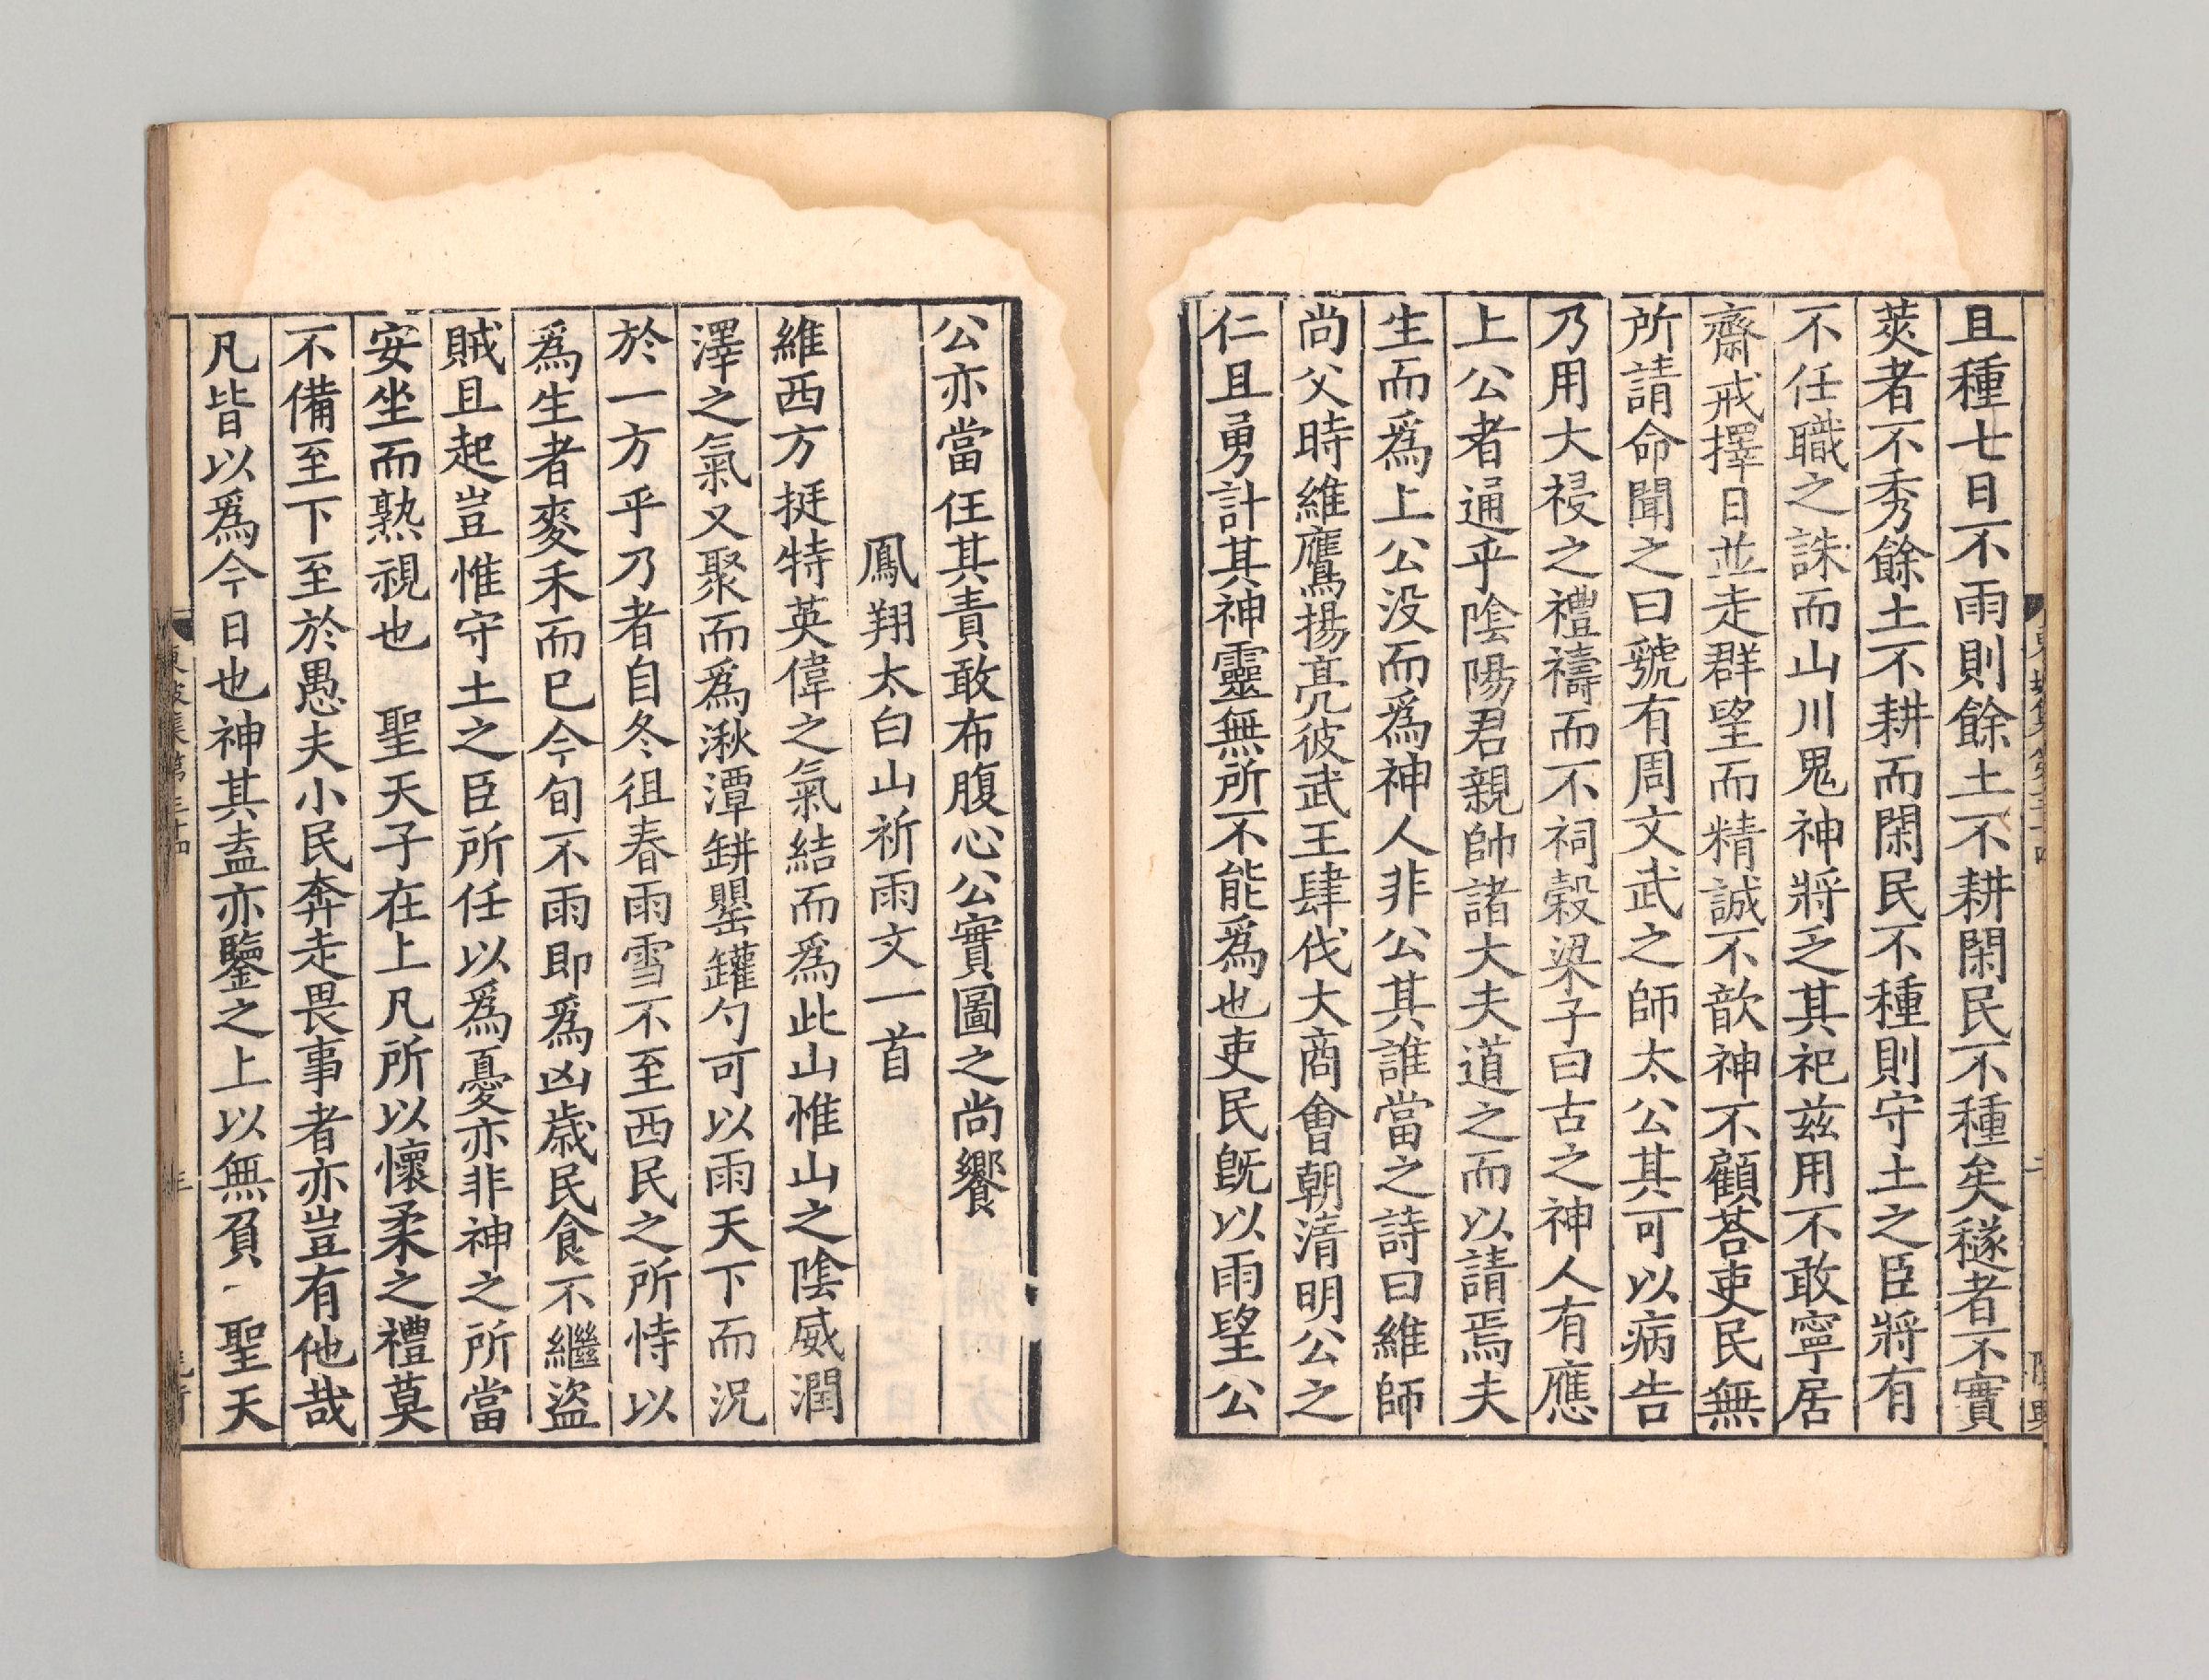 且種七日不雨則餘土不耕閑民不種矣穟者不實
莢者不秀餘土不耕而閑民不種則守土之臣將有
不任職之誅而山川鬼神將乏其祀兹用不敢寧居
齋戒擇日並走群望而精誠不歆神不顧荅吏民無
所請命聞之曰虢有周文武之師太公其可以病告
乃用大祲之禮禱而不祠穀梁子曰古之神人有應
上公者通乎陰陽君親帥諸大夫道之而以請焉夫
生而爲上公没而爲神人非公其誰當之詩曰維師
尚父時維鷹揚亮彼武王肆伐大商會朝清明公之
仁且勇計其神靈無所不能爲也吏民旣以雨望公
公亦當任其責敢布腹心公實圖之尚饗
鳳翔太白山祈雨文一首
維西方挺特英偉之氣結而爲此山惟山之陰威潤
澤之氣又聚而爲湫潭缾罌罐勺可以雨天下而況
於一方乎乃者自冬徂春雨雪不至西民之所恃以
爲生者麥禾而已今旬不雨即爲凶歲民食不繼盜
賊且起豈惟守土之臣所任以爲憂亦非神之所當
安坐而熟視也　聖天子在上凡所以懷柔之禮莫
不備至下至於愚夫小民奔走畏事者亦豈有他哉
凡皆以爲今日也神其盍亦鑒之上以無負　聖天